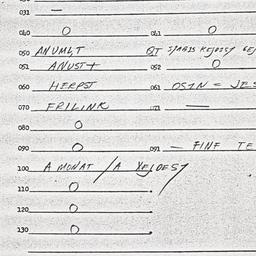 031 —
040 O 041 O
050 ANUMLT QT
051 ANUST 052 O
060 HERPST 061 OSIN = JES
070 FRILINK 071 —
080 O
090 O 091 — FINF TE
100 A MONAT / A YEJOEST
110 O
120 O
130 O